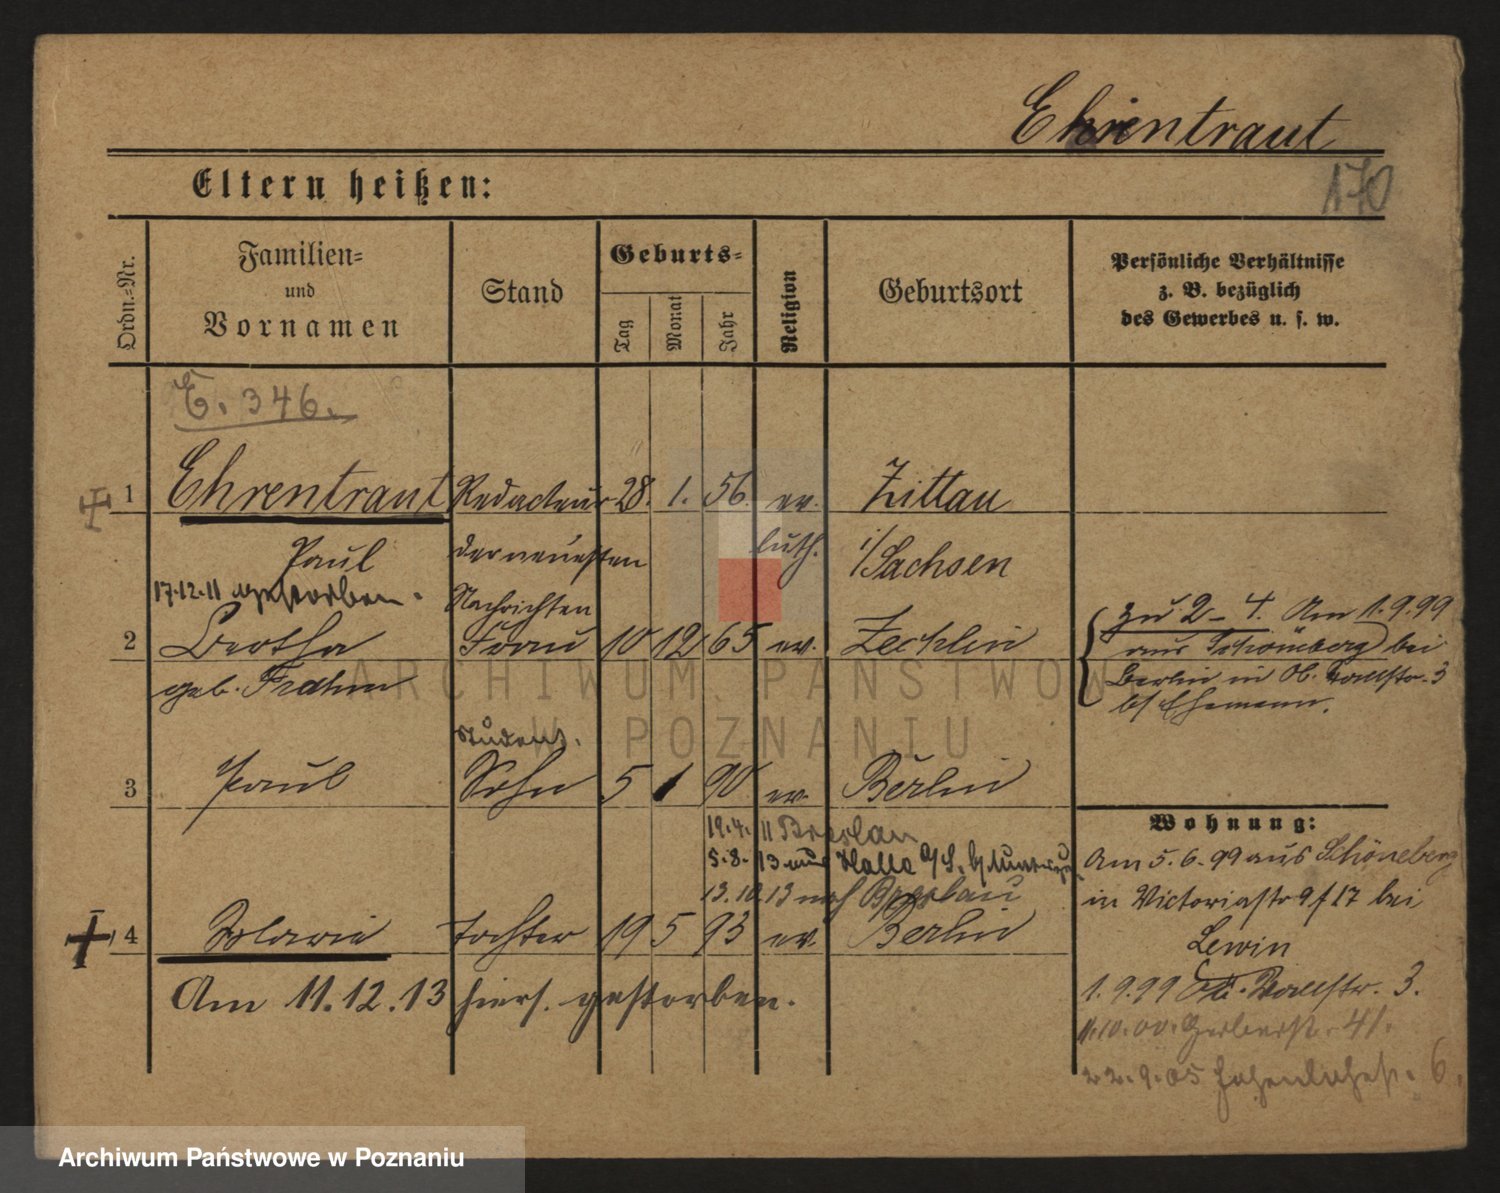 Ehrentraut
170
Eltern heißen:
Ordn.-Nr.
Familien-
und
Vornamen
Stand
Geburts-
Tag
Monat
Jahr
Religion
Geburtsort
Persönliche Verhältnisse
z. B. bezüglich
des Gewerbes u. s. w.
E. 346.
1 Ehrentraut Redacteur 28. 1. 56. ev. Zittau
Paul der neuesten luth. i/Sachsen
17.12.11 gestorben. Nachrichten
2 Bertha Frau 10 12 65 ev. Zechlin
geb. Frahm
zu 2-4. Am 1.9.99
aus Schöneberg bei
Berlin in Ob. Wallstr. 3
b/ Ehemann.
Student.
3 Paul Sohn 5 1 90 ev. Berlin
19.4.11 Breslau
5.8.13 aus Halle a/S.
13.10.13 nach Breslau
4 Marie Tochter 19 5 93 ev. Berlin
Am 11.12.13 hiers. gestorben.
Wohnung:
Am 5.6.99 aus Schöneberg
in Victoriastr 9/17 bei
Lewin
1.9.99 Ob. Wallstr. 3.
11.10.00. Gerberst. 41.
22.9.05 Hohenlohest. 6.
ARCHIWUM PAŃSTWOWE
W POZNANIU
Archiwum Państwowe w Poznaniu